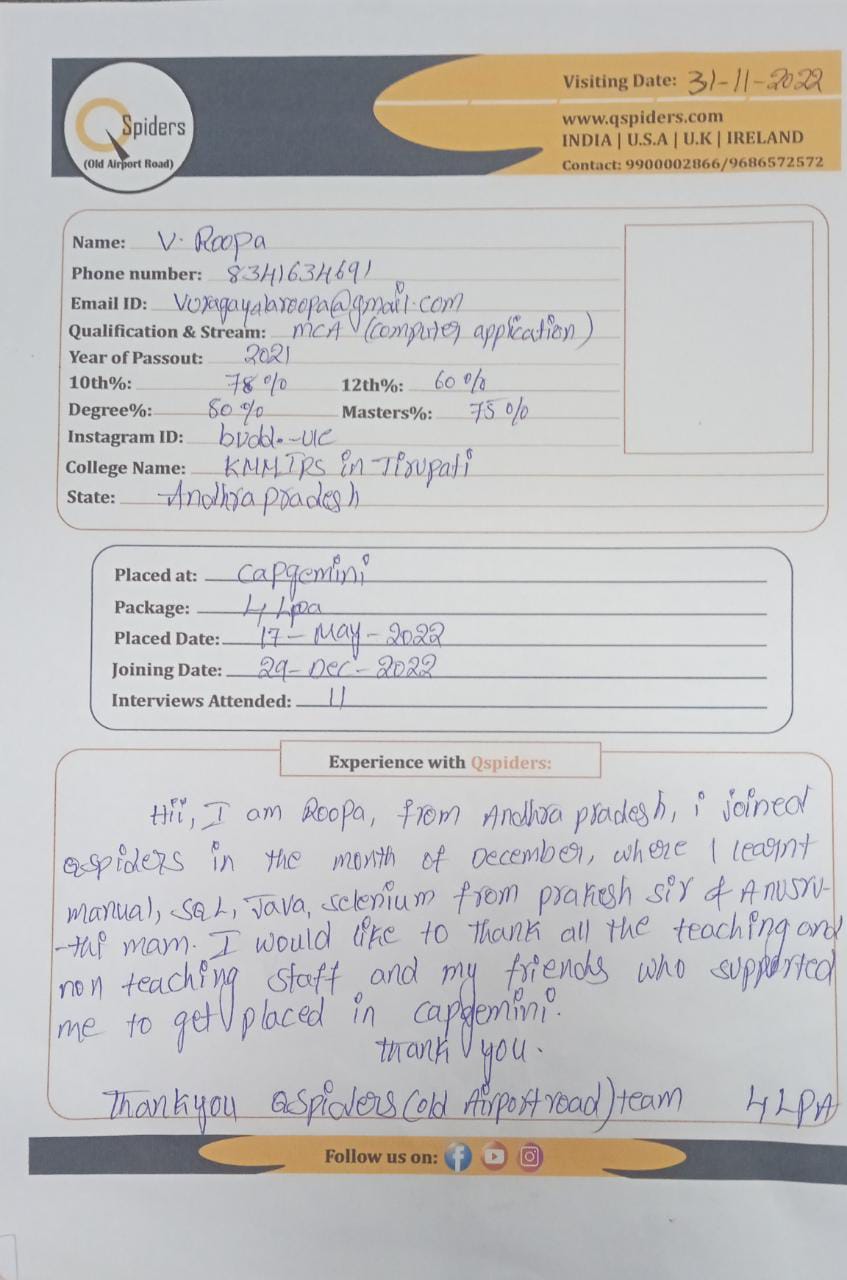 Spiders
(Old Airport Road)
Visiting Date: 31-11-2022
www.qspiders.com
INDIA | U.S.A | U.K | IRELAND
Contact: 9900002866/9686572572
Name: V. Roopa
Phone number: 8341634691
Email ID: Vuragayalaroopa@gmail.com
Qualification & Stream: MCA (computer application)
Year of Passout: 2021
10th%: 78% 12th%: 60%
Degree%: 80% Masters%: 75%
Instagram ID:
College Name: KMMIPS in Tirupati
State: Andhra pradesh
Placed at: capgemini
Package: 4 Lpa
Placed Date: 17-May-2022
Joining Date: 29-Dec-2022
Interviews Attended: 11
Experience with Qspiders:
Hii, I am Roopa, from Andhra pradesh, i joined
Qspiders in the month of December, where I learnt
manual, SQL, Java, selenium from prakesh sir & Anusru-
-thi mam. I would like to thank all the teaching and
non teaching staff and my friends who supported
me to get placed in capgemini.
thank you.
Thankyou Qspiders (old Airport road) team 4 LPA
Follow us on: